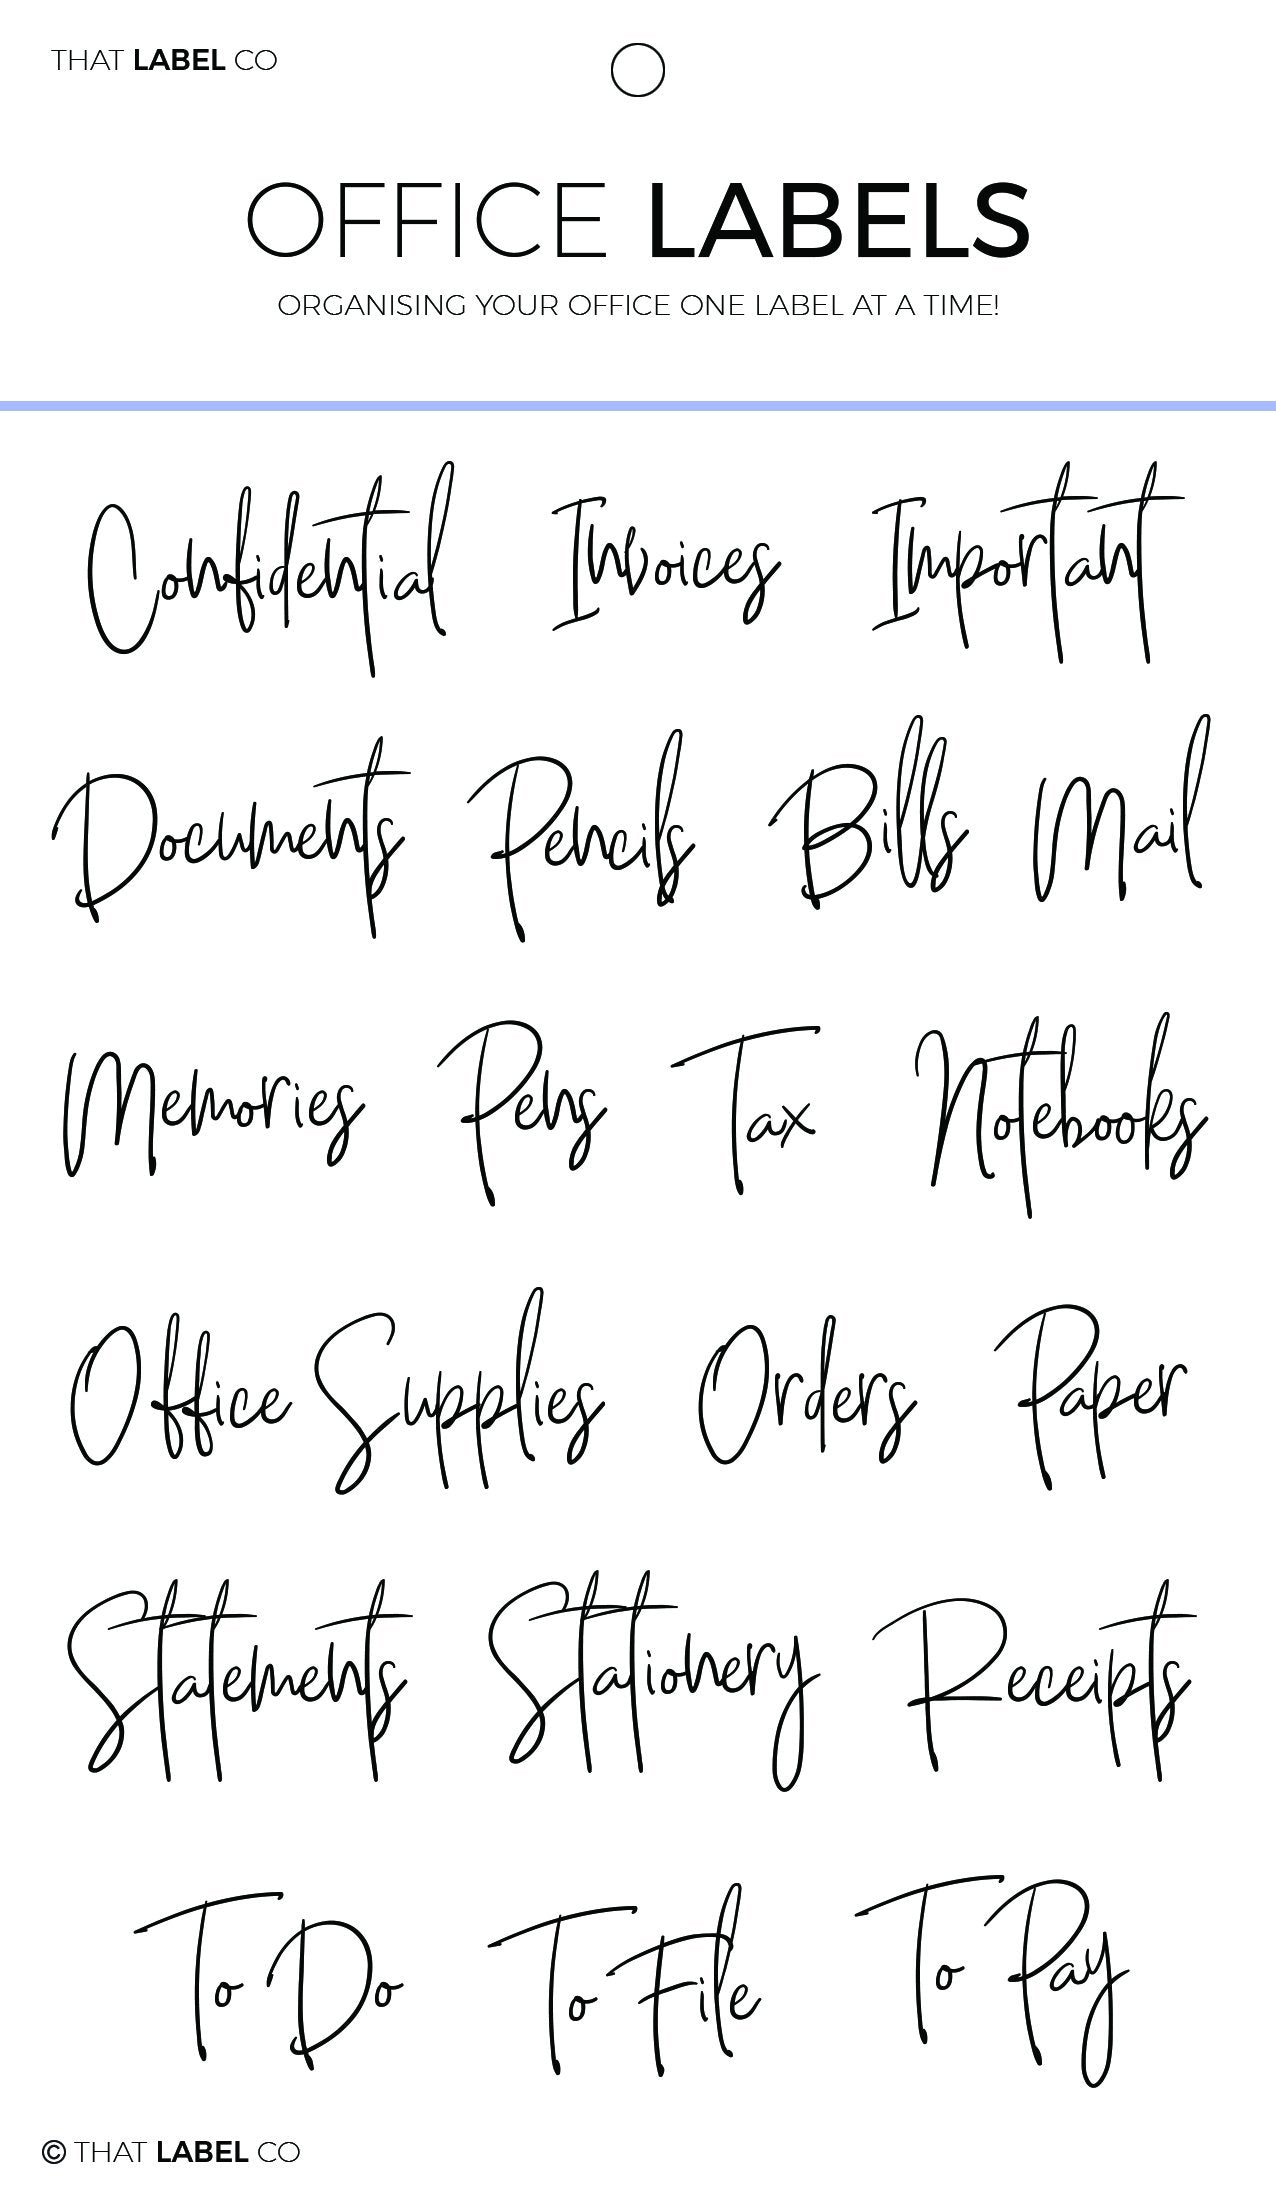 THAT LABEL CO
OFFICE LABELS
ORGANISING YOUR OFFICE ONE LABEL AT A TIME!
Confidential Invoices Important
Documents Pencils Bills Mail
Memories Pens Tax Notebooks
Office Supplies Orders Paper
Statements Stationery Receipts
To Do To File To Pay
© THAT LABEL CO